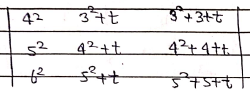 4² 3²+t 3²+3+t
5² 4²+t 4²+4+t
6² 5²+t 5²+5+t